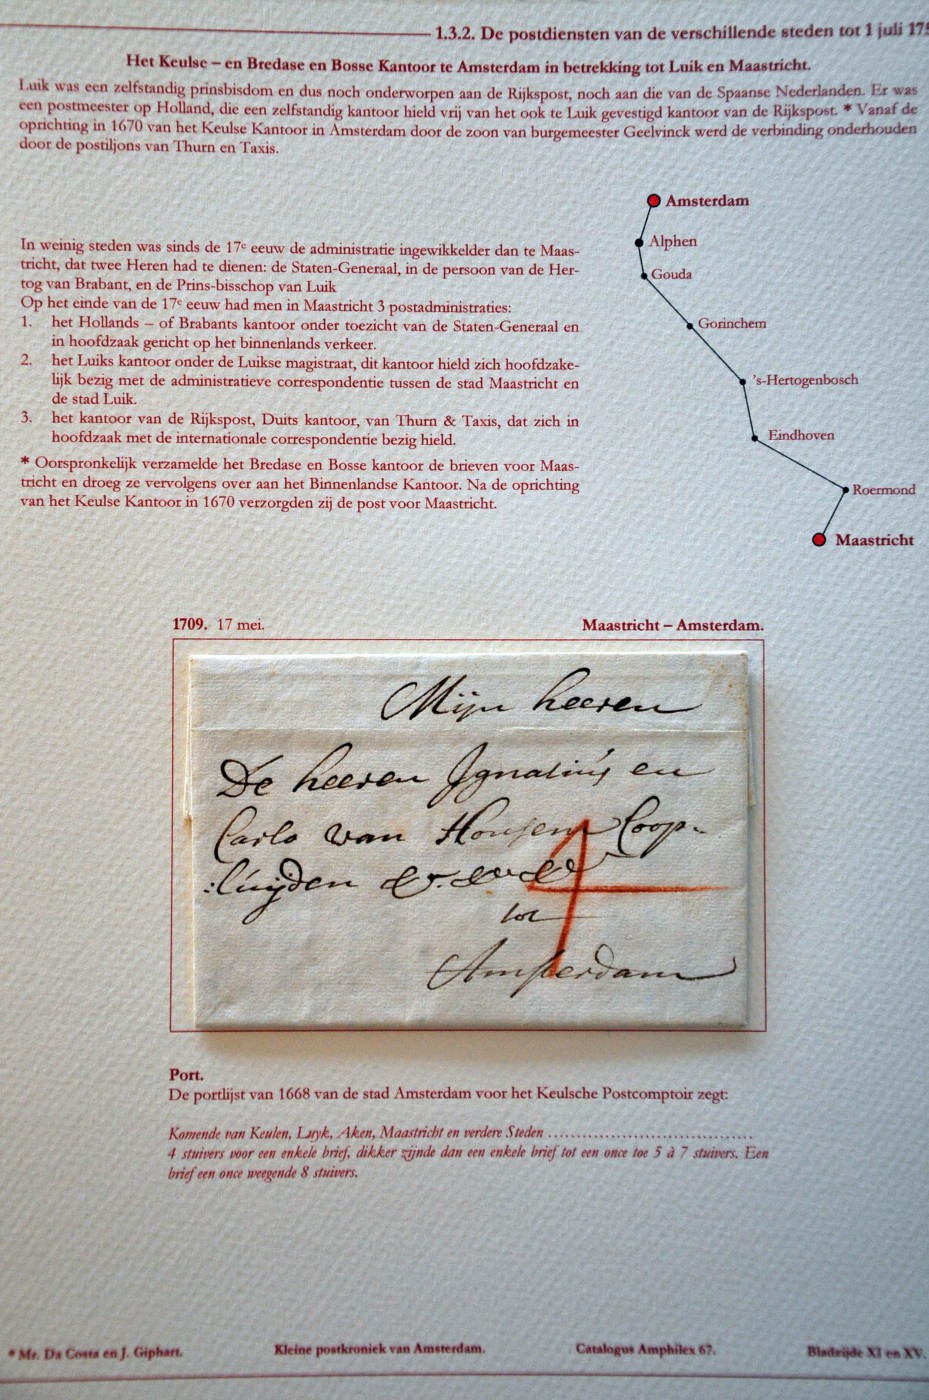 1.3.2. De postdiensten van de verschillende steden tot 1 juli 175
Het Keulse – en Bredase en Bosse Kantoor te Amsterdam in betrekking tot Luik en Maastricht.
Luik was een zelfstandig prinsbisdom en dus noch onderworpen aan de Rijkspost, noch aan die van de Spaanse Nederlanden. Er was
een postmeester op Holland, die een zelfstandig kantoor hield vrij van het ook te Luik gevestigd kantoor van de Rijkspost. * Vanaf de
oprichting in 1670 van het Keulse Kantoor in Amsterdam door de zoon van burgemeester Geelvinck werd de verbinding onderhouden
door de postiljons van Thurn en Taxis.
In weinig steden was sinds de 17e eeuw de administratie ingewikkelder dan te Maas-
tricht, dat twee Heren had te dienen: de Staten-Generaal, in de persoon van de Her-
tog van Brabant, en de Prins-bisschop van Luik
Op het einde van de 17e eeuw had men in Maastricht 3 postadministraties:
1. het Hollands – of Brabants kantoor onder toezicht van de Staten-Generaal en
in hoofdzaak gericht op het binnenlands verkeer.
2. het Luiks kantoor onder de Luikse magistraat, dit kantoor hield zich hoofdzake-
lijk bezig met de administratieve correspondentie tussen de stad Maastricht en
de stad Luik.
3. het kantoor van de Rijkspost, Duits kantoor, van Thurn & Taxis, dat zich in
hoofdzaak met de internationale correspondentie bezig hield.
* Oorspronkelijk verzamelde het Bredase en Bosse kantoor de brieven voor Maas-
tricht en droeg ze vervolgens over aan het Binnenlandse Kantoor. Na de oprichting
van het Keulse Kantoor in 1670 verzorgden zij de post voor Maastricht.
Amsterdam
Alphen
Gouda
Gorinchem
's-Hertogenbosch
Eindhoven
Roermond
Maastricht
1709. 17 mei.
Maastricht – Amsterdam.
Mijn heeren
De heeren Ignatius en
Carlo van Housem Coop-
:luijden &.
4
tot
Amsterdam
Port.
De portlijst van 1668 van de stad Amsterdam voor het Keulsche Postcomptoir zegt:
Komende van Keulen, Luyk, Aken, Maastricht en verdere Steden ..................................
4 stuivers voor een enkele brief, dikker zijnde dan een enkele brief tot een once toe 5 à 7 stuivers. Een
brief een once weegende 8 stuivers.
* Mr. Da Costa en J. Giphart.
Kleine postkroniek van Amsterdam.
Catalogus Amphilex 67.
Bladzijde XI en XV.